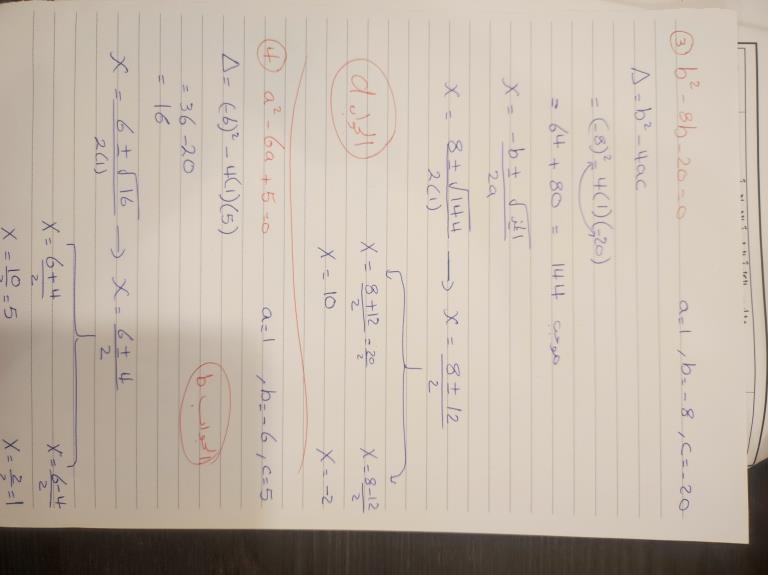 ③ b² - 8b - 20 = 0   a=1 , b=-8 , c=-20
Δ = b² - 4ac
= (-8)² - 4(1)(-20)
= 64 + 80 = 144 موجب
x = (-b ± √المميز) / 2a
x = (8 ± √144) / 2(1) → x = (8 ± 12) / 2
x = (8+12)/2 = 20/2   x = (8-12)/2
x = 10   x = -2
الجواب d
④ a² - 6a + 5 = 0   a=1 , b=-6 , c=5
Δ = (-6)² - 4(1)(5)
= 36 - 20
= 16
الجواب b
x = (6 ± √16) / 2(1) → x = (6 ± 4) / 2
x = (6+4)/2   x = (6-4)/2
x = 10/2 = 5   x = 2/2 = 1